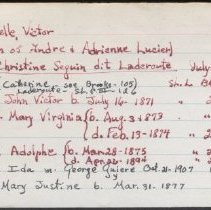 elle, Victor
n of Andre & Adrienne Lucier)
Christine Seguin dit Laderoute July
Catherine - see Brooke-105)
Laderoute St. L
John Victor b. July-16-1871
Mary Virginia (b. Aug. 3-1873
(d. Feb. 13-1874
Adolphe (b. Mar. 28-1875
(d. Apr. 26-1894
Ida m. George Gaiere Oct. 21-1907
Mary Justine b. Mar. 31-1877